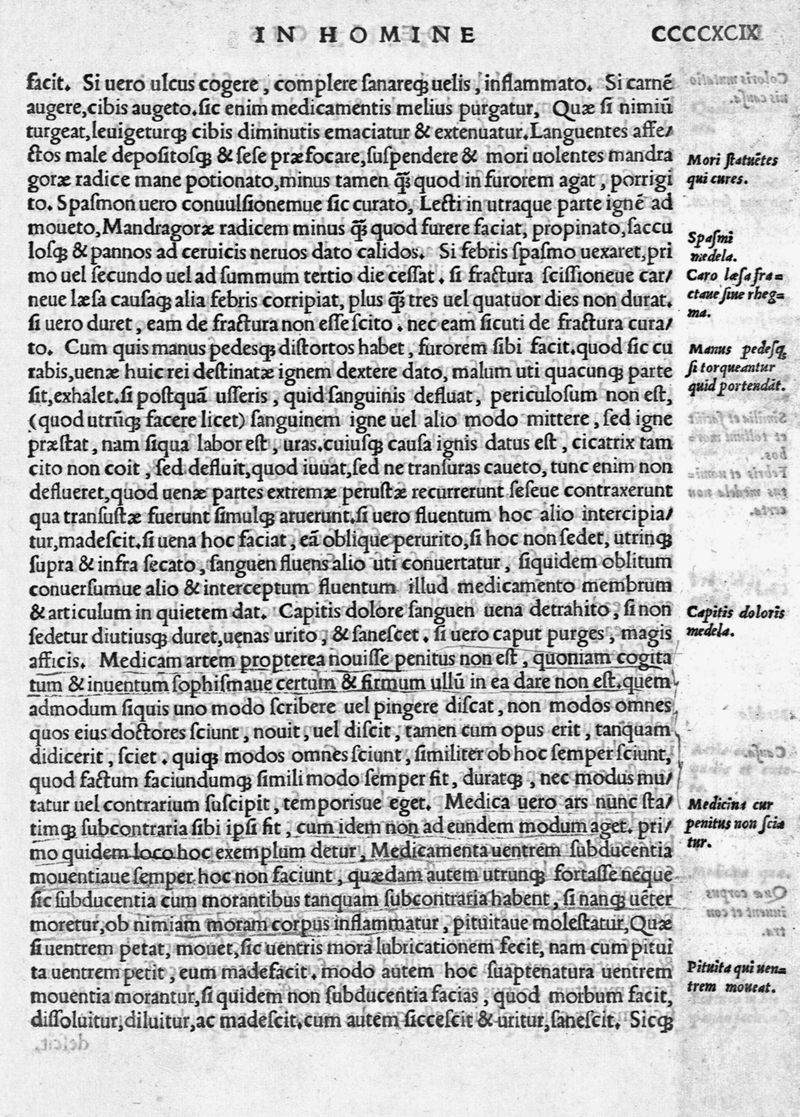 IN HOMINE CCCCXCIX
facit. Si uero ulcus cogere, complere ſanareq́; uelis, inflammato. Si carnẽ
augere, cibis augeto. ſic enim medicamentis melius purgatur, Quæ ſi nimiũ
turgeat, leuigeturq́; cibis diminutis emaciatur & extenuatur. Languentes affe/
ctos male depoſitoſq́; & ſeſe præfocare, ſuſpendere & mori uolentes mandra
goræ radice mane potionato, minus tamen q̃ quod in furorem agat, porrigi
to. Spaſmon uero conuulſionemue ſic curato, Lecti in utraque parte ignẽ ad
moueto, Mandragoræ radicem minus q̃ quod furere faciat, propinato, ſaccu
loſq́; & pannos ad ceruicis neruos dato calidos. Si febris ſpaſmo uexaret, pri
mo uel ſecundo uel ad ſummum tertio die ceſſat. ſi fractura ſciſſioneue car/
neue læſa cauſaq́; alia febris corripiat, plus q̃ tres uel quatuor dies non durat.
ſi uero duret, eam de fractura non eſſe ſcito. nec eam ſicuti de fractura cura/
to. Cum quis manus pedeſq́; diſtortos habet, furorem ſibi facit. quod ſic cu
rabis, uenæ huic rei deſtinatæ ignem dextere dato, malum uti quacunq́; parte
ſit, exhalet. ſi poſtquã uſſeris, quid ſanguinis defluat, periculoſum non eſt,
(quod utrũq́; facere licet) ſanguinem igne uel alio modo mittere, ſed igne
præſtat, nam ſiqua labor eſt, uras. cuiuſq́; cauſa ignis datus eſt, cicatrix tam
cito non coit, ſed defluit, quod iuuat, ſed ne tranſuras caueto, tunc enim non
deflueret, quod uenæ partes extremæ peruſtæ recurrerunt ſeſeue contraxerunt
qua tranſuſtæ fuerunt ſimulq́; aruerunt. ſi uero fluentum hoc alio intercipia/
tur, madeſcit. ſi uena hoc faciat, eã oblique perurito, ſi hoc non ſedet, utrinq́;
ſupra & infra ſecato, ſanguen fluens alio uti conuertatur, ſiquidem oblitum
conuerſumue alio & interceptum fluentum illud medicamento membrum
& articulum in quietem dat. Capitis dolore ſanguen uena detrahito, ſi non
ſedetur diutiusq́; duret, uenas urito, & ſaneſcet. ſi uero caput purges, magis
afficis. Medicam artem propterea nouiſſe penitus non eſt, quoniam cogita
tum & inuentum ſophiſmaue certum & firmum ullũ in ea dare non eſt. quem
admodum ſiquis uno modo ſcribere uel pingere diſcat, non modos omnes
quos eius doctores ſciunt, nouit, uel diſcit, tamen cum opus erit, tanquam
didicerit, ſciet. quiq́; modos omnes ſciunt, ſimiliter ob hoc ſemper ſciunt,
quod factum faciundumq́; ſimili modo ſemper fit, duratq́;, nec modus mu/
tatur uel contrarium ſuſcipit, temporisue eget. Medica uero ars nunc ſta/
timq́; ſubcontraria ſibi ipſi fit, cum idem non ad eundem modum aget. pri/
mo quidem loco hoc exemplum detur, Medicamenta uentrem ſubducentia
mouentiaue ſemper hoc non faciunt, quædam autem utrunq́; fortaſſe neque
ſic ſubducentia cum morantibus tanquam ſubcontraria habent, ſi nanq́; uẽter
moretur, ob nimiam moram corpus inflammatur, pituitaue moleſtatur, Quæ
ſi uentrem petat, mouet, ſic uentris mora lubricationem fecit, nam cum pitui
ta uentrem petit, eum madefacit. modo autem hoc ſuaptenatura uentrem
mouentia morantur, ſi quidem non ſubducentia facias, quod morbum facit,
diſſoluitur, diluitur, ac madeſcit. cum autem ſicceſcit & uritur, ſaneſcit. Sicq́;
Mori ſtatuẽtes
qui cures.
Spaſmi
medela.
Caro læſa fra=
ctaue ſiue rheg=
ma.
Manus pedeſq́;
ſi torqueantur
quid portendãt.
Capitis doloris
medela.
Medicina cur
penitus non ſcia
tur.
Pituita qui uen=
trem moueat.